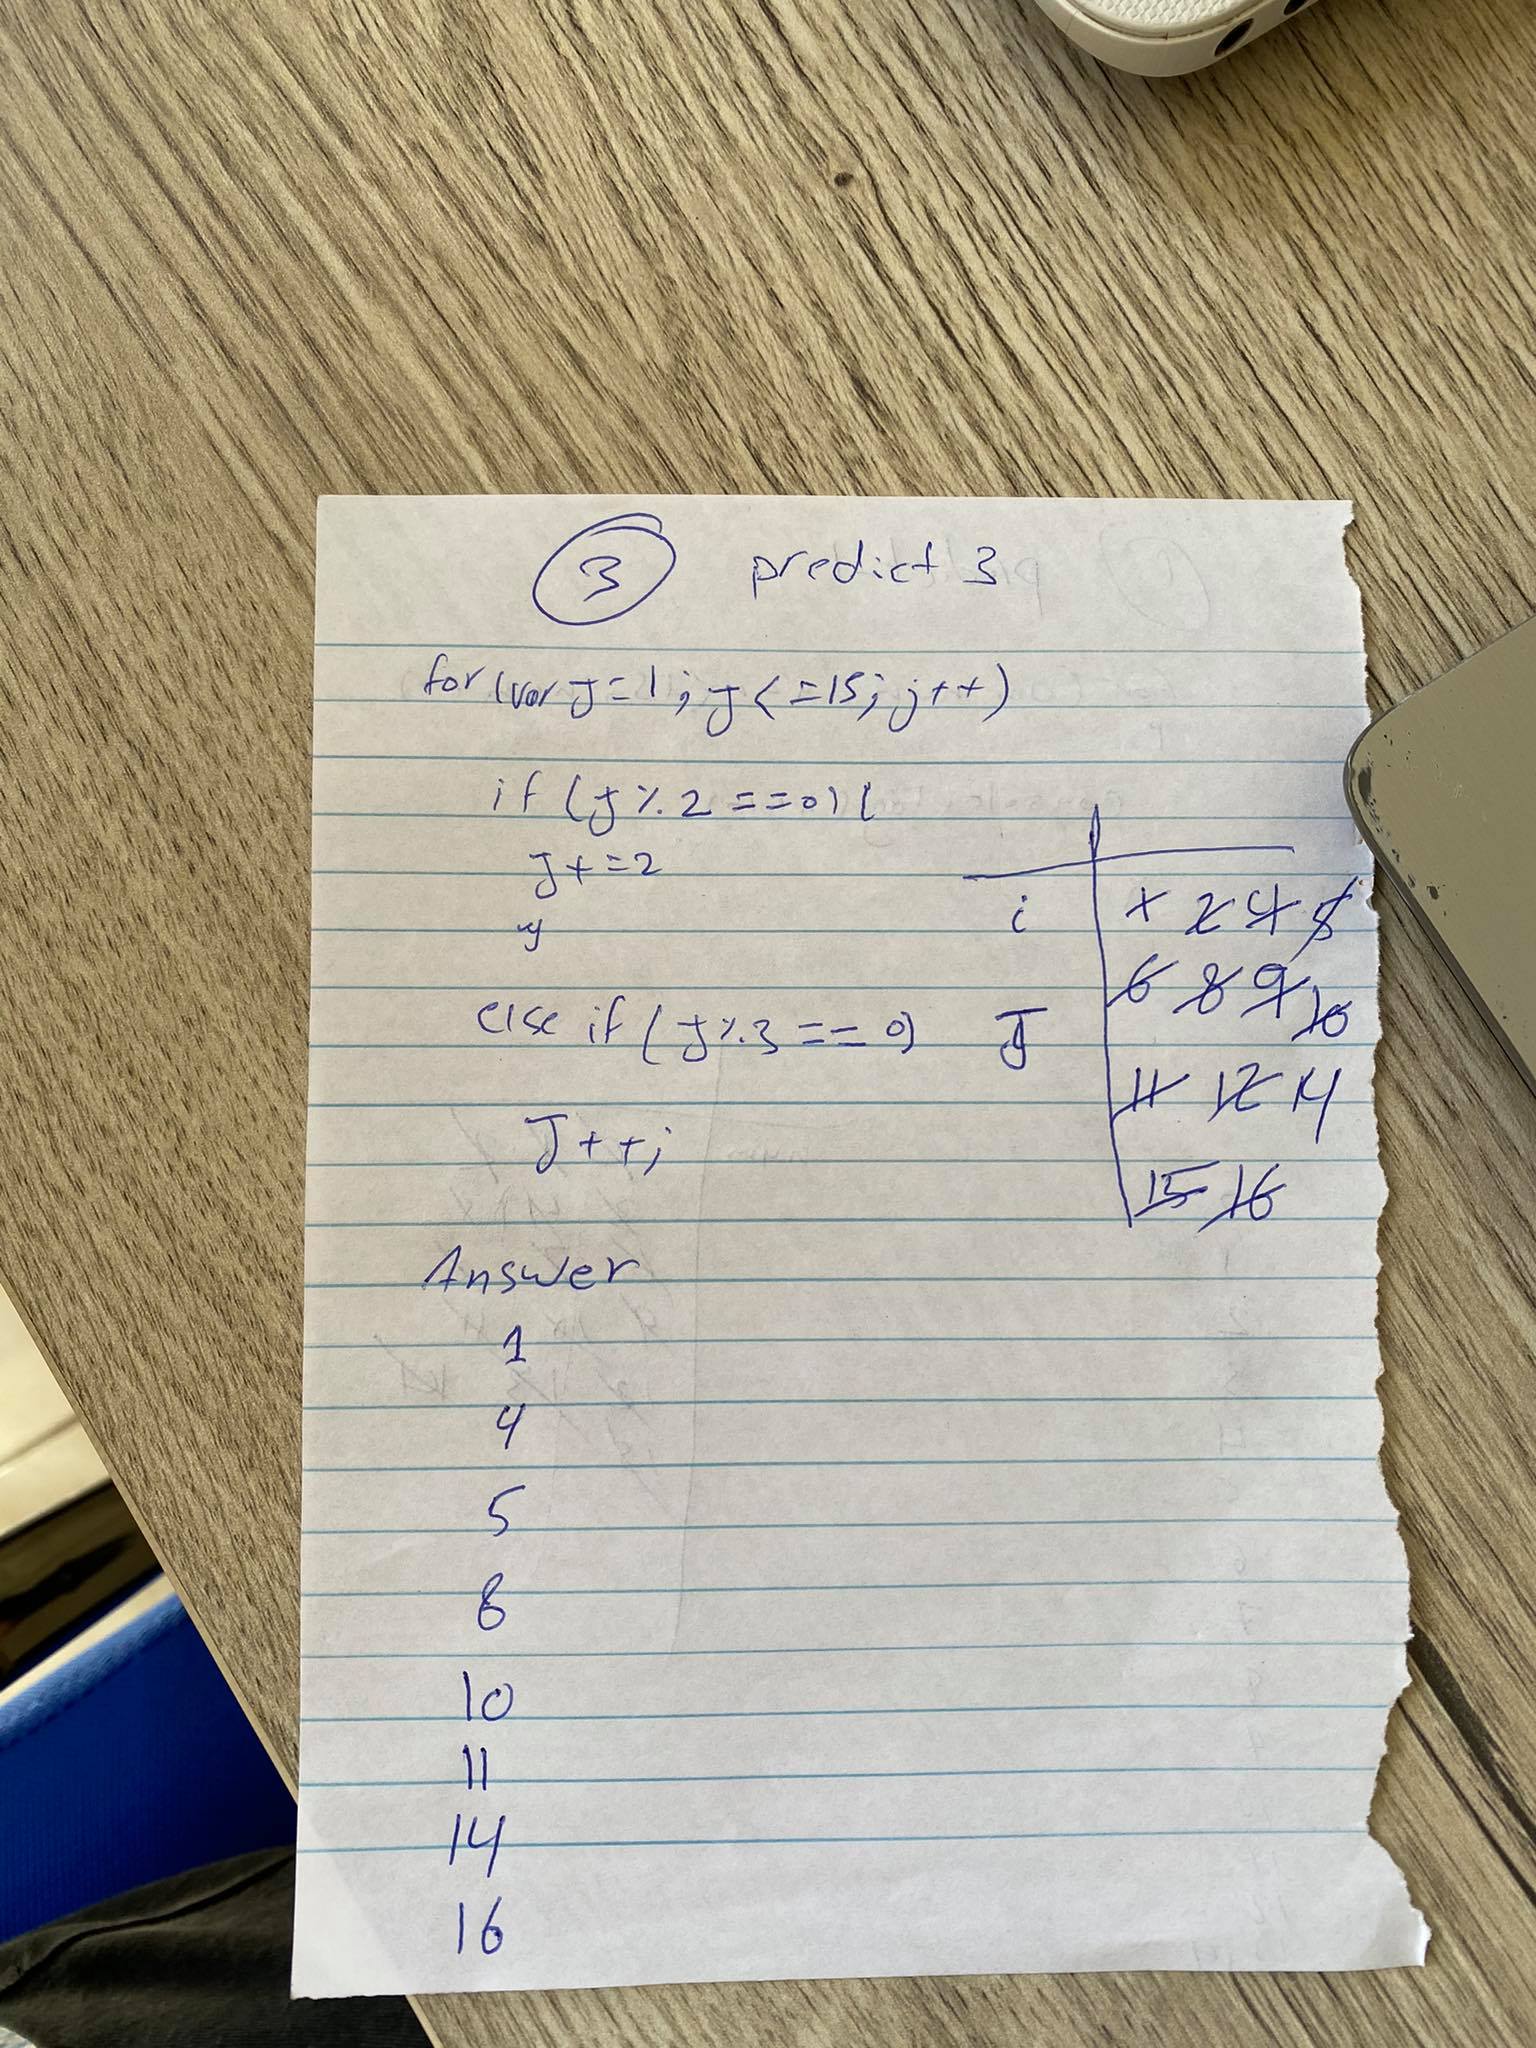 3 predict 3
for (var J=1; J<=15; j++)
if (J%2==0){
J+=2
}
else if (J%3==0)
J++;
i 1 2 4 5
6 8 9 10
J
11 12 14
15 16
Answer
1
4
5
8
10
11
14
16